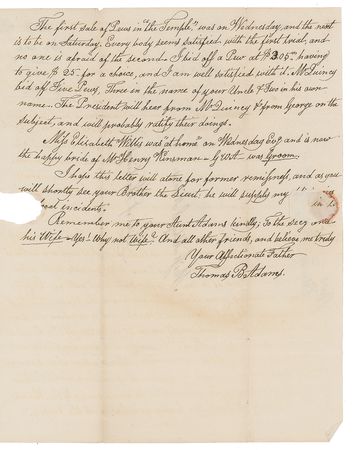 The first sale of Pews in "the Temple," was on Wednesday, and the next
is to be on Saturday. Every body seems satisfied with the first break, and
no one is afraid of the second. I bid off a Pew at $305. having
to give $25. for a choice, and I am well satisfied with it. Mr Quincy
bid off Five Pews, Three in the name of your Uncle & Two in his own
name. The President will hear from Mr Quincy & from George on the
subject, and will probably ratify their doings.
Miss Elizabeth Willis was "at home" on Wednesday Evg and is now
the happy bride of Mr Henry Kinsman – GWA – was Groom.
I hope this letter will atone for former remissness, and as you
will shortly see your Brother the Lieut. he will supply my
incidents.
Remember me to your Aunt Adams kindly; To the Secy and
his Wife – Yes! Why not Wife? And all other friends, and believe me truly
Your Affectionate Father
Thomas B Adams.